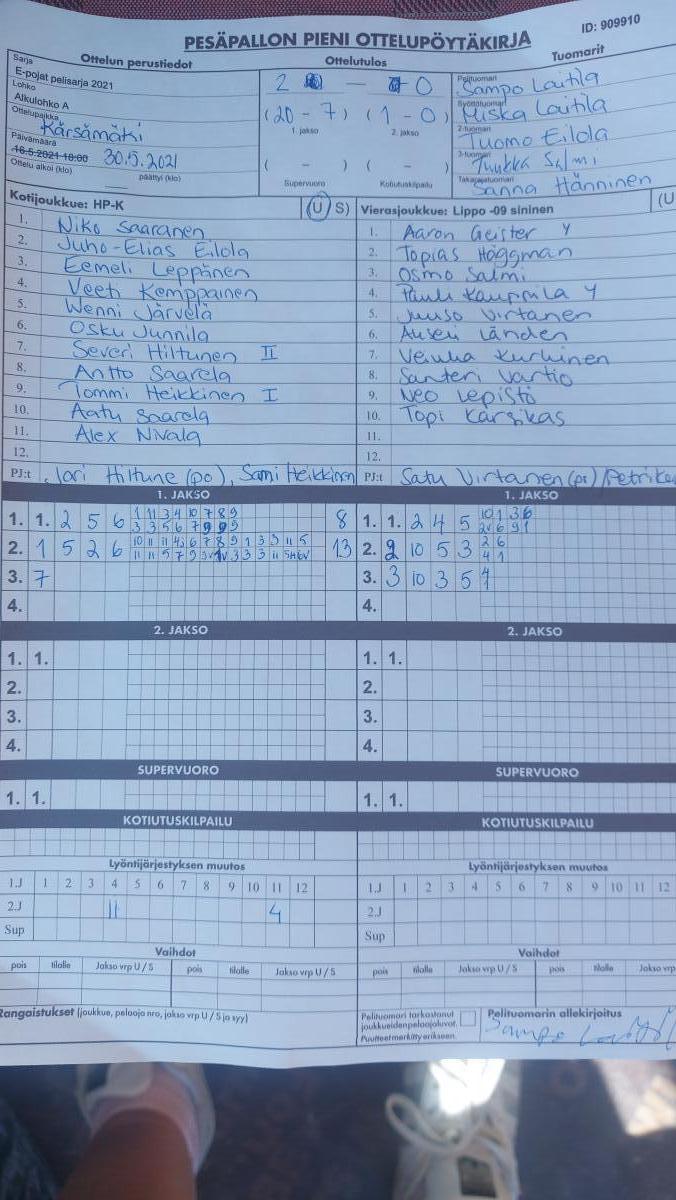 PESÄPALLON PIENI OTTELUPÖYTÄKIRJA
ID: 909910
Ottelun perustiedot
Ottelutulos
Tuomarit
Sarja
E-pojat pelisarja 2021
Lohko
Alkulohko A
Ottelupaikka
Kärsämäki
Päivämäärä
16.5.2021 18:00 30.5.2021
Ottelu alkoi (klo) päättyi (klo)
2 - 0
(20 - 7) (1 - 0)
1. jakso 2. jakso
( - ) ( - )
Supervuoro Kotiutuskilpailu
Pelituomari
Sampo Lautila
Syöttötuomari
Miska Lautila
2-tuomari
Tuomo Eilola
3-tuomari
Tuukka Salmi
Takarajatuomari
Sanna Hänninen
Kotijoukkue: HP-K (U S)
1. Niko Saaranen
2. Juho-Elias Eilola
3. Eemeli Leppänen
4. Veeti Kemppainen
5. Wenni Järvelä
6. Osku Junnila
7. Severi Hiltunen II
8. Antto Saarela
9. Tommi Heikkinen I
10. Aatu Saarela
11. Alex Nivala
12.
PJ:t Jari Hiltune (po), Sami Heikkinen
Vierasjoukkue: Lippo -09 sininen (U
1. Aaron Geister Y
2. Topias Häggman
3. Osmo Salmi
4. Pauli Kauppila Y
5. Juuso Virtanen
6. Länden
7. Kurhinen
8. Santeri Vartio
9. Neo Lepistö
10. Topi Karsikas
11.
12.
PJ:t Satu Virtanen (po)
1. JAKSO
1. 1. 2 5 6 8
2. 1 5 2 6 13
3. 7
4.
1. JAKSO
1. 1. 2 4 5
2. 9 10 5 3
3. 3 10 3 5
4.
2. JAKSO
1. 1.
2.
3.
4.
2. JAKSO
1. 1.
2.
3.
4.
SUPERVUORO
1. 1.
SUPERVUORO
1. 1.
KOTIUTUSKILPAILU
KOTIUTUSKILPAILU
Lyöntijärjestyksen muutos
1.J 1 2 3 4 5 6 7 8 9 10 11 12
2.J 11 4
Sup
Lyöntijärjestyksen muutos
1.J 1 2 3 4 5 6 7 8 9 10 11 12
2.J
Sup
Vaihdot
pois tilalle Jakso vrp U / S pois tilalle Jakso vrp U / S
Vaihdot
pois tilalle Jakso vrp U / S pois tilalle Jakso vrp
Rangaistukset (joukkue, pelaaja nro, jakso vrp U / S ja syy)
Pelituomari tarkastanut
joukkueiden pelaajaluvat.
Puutteet merkitty erikseen.
Pelituomarin allekirjoitus
Sampo